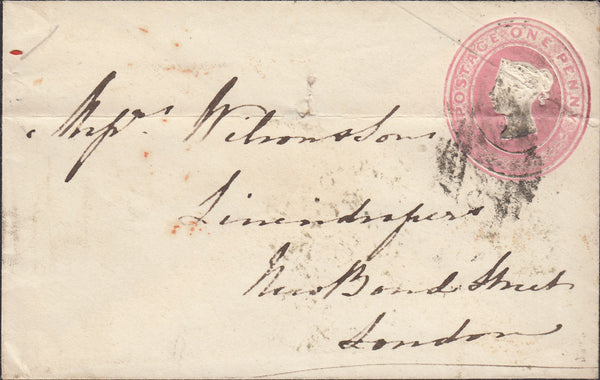 POSTAGE ONE PENNY
Messrs Wilson & Sons
Linendrapers
New Bond Street
London